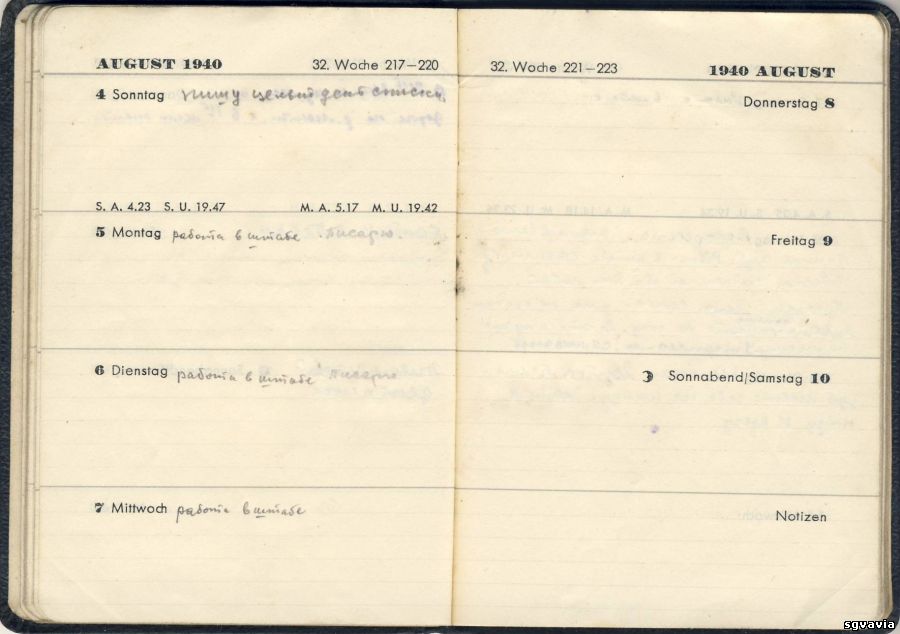 AUGUST 1940 32. Woche 217–220
4 Sonntag пишу целый день списки
S. A. 4.23 S. U. 19.47 M. A. 5.17 M. U. 19.42
5 Montag работа в штабе писарю.
6 Dienstag работа в штабе писарю
7 Mittwoch работа в штабе
32. Woche 221–223 1940 AUGUST
Donnerstag 8
Freitag 9
Sonnabend/Samstag 10
Notizen
sgvavia